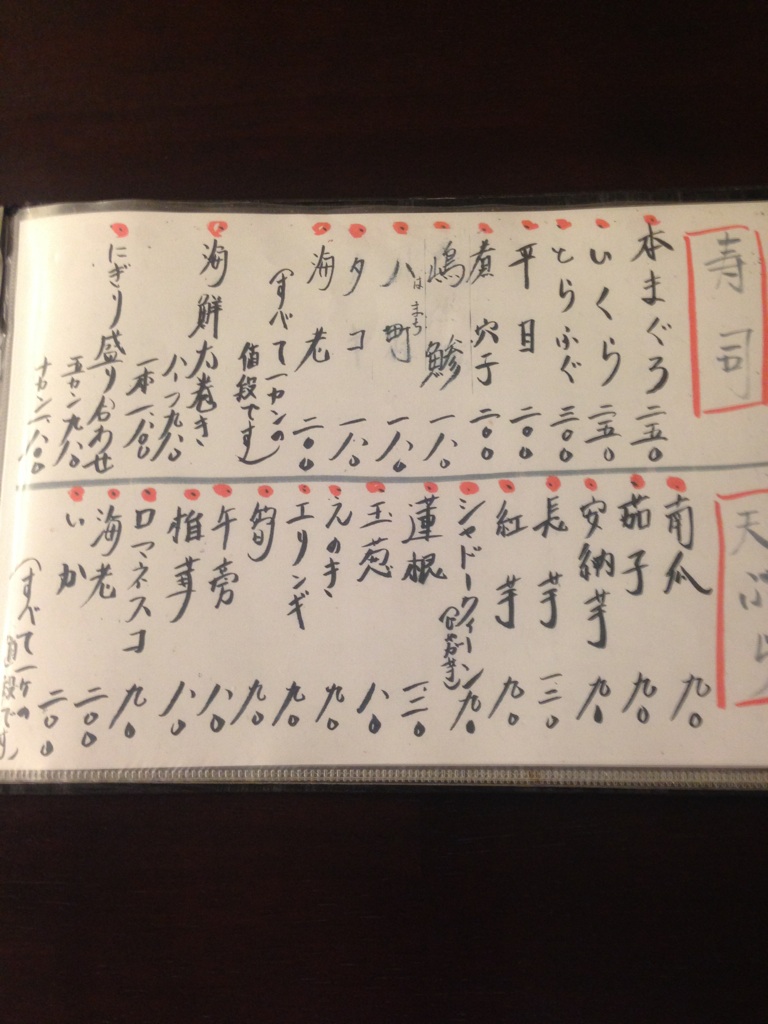 寿司
本まぐろ 二五〇
いくら 二五〇
とらふぐ 三〇〇
平目 二〇〇
煮穴子 二〇〇
嶋鯵 一八〇
八町 一八〇
はまち
タコ 一八〇
海老 二〇〇
(すべて一カンの
値段です)
海鮮太巻き
ハーフ九八〇
一本一八〇〇
にぎり盛り合わせ
五カン九八〇
十カン一八〇〇
天ぷら
南瓜 九〇
茄子 九〇
安納芋 九〇
長芋 一二〇
紅芋 九〇
シャドークィーン 九〇
(じゃが芋)
蓮根 一二〇
玉葱 八〇
えのき 九〇
エリンギ 九〇
筍 九〇
午蒡 八〇
椎茸 八〇
ロマネスコ 九〇
海老 二〇〇
いか 二〇〇
(すべて一ケの
値段です)